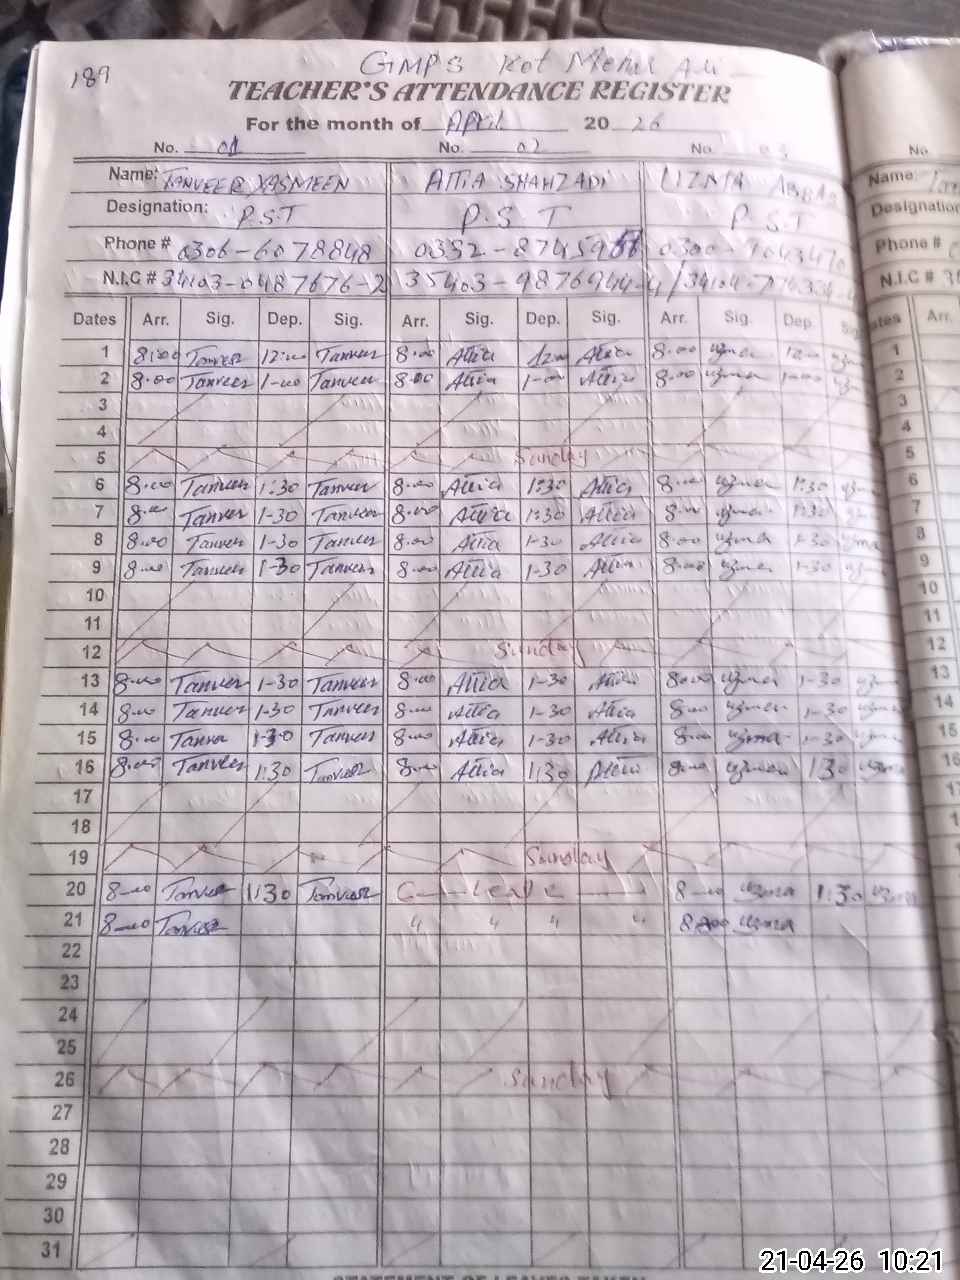 189
GMPS Kot Mehar Ali
TEACHER'S ATTENDANCE REGISTER
For the month of April 20 26
No. 01 No. 02 No. 03 No.
Name: TANVEER YASMEEN ATTIA SHAHZADI UZMA ABBAS Name:
Designation: P.S.T P.S T P.S.T Designation
Phone # 0306-6078848 0332- 0300- Phone #
N.I.C # 34103-0487676-2 35403-9876944-4 N.I.C #
Dates Arr. Sig. Dep. Sig. Arr. Sig. Dep. Sig. Arr. Sig. Dep. Arr.
1 8:00 Tanveer 12:00 Tanveer 8:00 Attia 12:00 Attia 8:00 uzma 12:00 uzma 1
2 8:00 Tanveer 1-00 Tanveer 8:00 Attia 1-00 Attia 8:00 uzma 1-00 2
3 3
4 4
5 Sunday 5
6 8:00 Tanveer 1:30 Tanveer 8:00 Attia 1:30 Attia 8:00 uzma 1:30 6
7 8:00 Tanveer 1-30 Tanveer 8:00 Attia 1:30 Attia 8:00 uzma 1:30 7
8 8:00 Tanveer 1-30 Tanveer 8:00 Attia 1-30 Attia 8:00 uzma 1-30 uzma 8
9 8:00 Tanveer 1-30 Tanveer 8:00 Attia 1-30 Attia 8:00 uzma 1-30 9
10 10
11 11
12 Sunday 12
13 8:00 Tanveer 1-30 Tanveer 8:00 Attia 1-30 Attia 8:00 uzma 1-30 13
14 8:00 Tanveer 1-30 Tanveer 8:00 Attia 1-30 Attia 8:00 uzma 1-30 14
15 8:00 Tanveer 1-30 Tanveer 8:00 Attia 1-30 Attia 8:00 uzma 1-30 uzma 15
16 8:00 Tanveer 1:30 Tanveer 8:00 Attia 1:30 Attia 8:00 uzma 1:30 uzma 16
17
18
19 Sunday
20 8-00 Tanveer 1:30 Tanveer C-leave 8-00 uzma 1:30 uzma
21 8-00 Tanveer " " " " 8:00 uzma
22
23
24
25
26 Sunday
27
28
29
30
31
STATEMENT OF LEAVES TAKEN
21-04-26 10:21